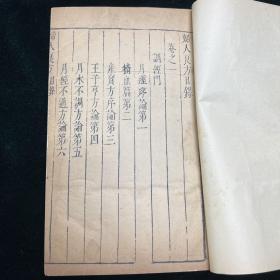 婦人良方目錄
卷之一
調經門
月經序論第一
精血篇第二
產寳方序論第三
王子亨方論第四
月水不調方論第五
月經不通方論第六
婦人良方目錄